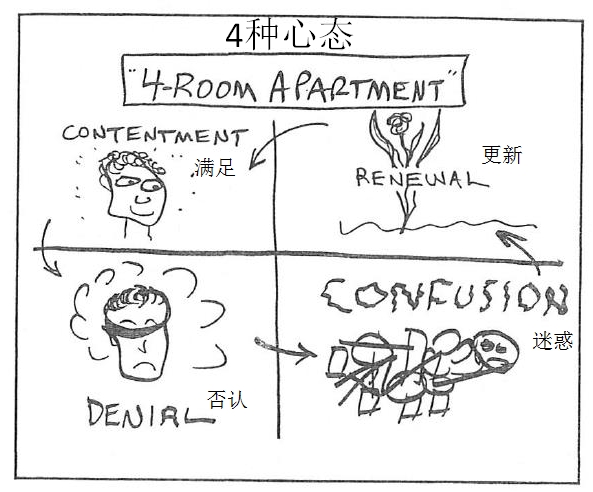 4种心态
"4-ROOM APARTMENT"
CONTENTMENT
满足
RENEWAL
更新
DENIAL
否认
CONFUSION
迷惑